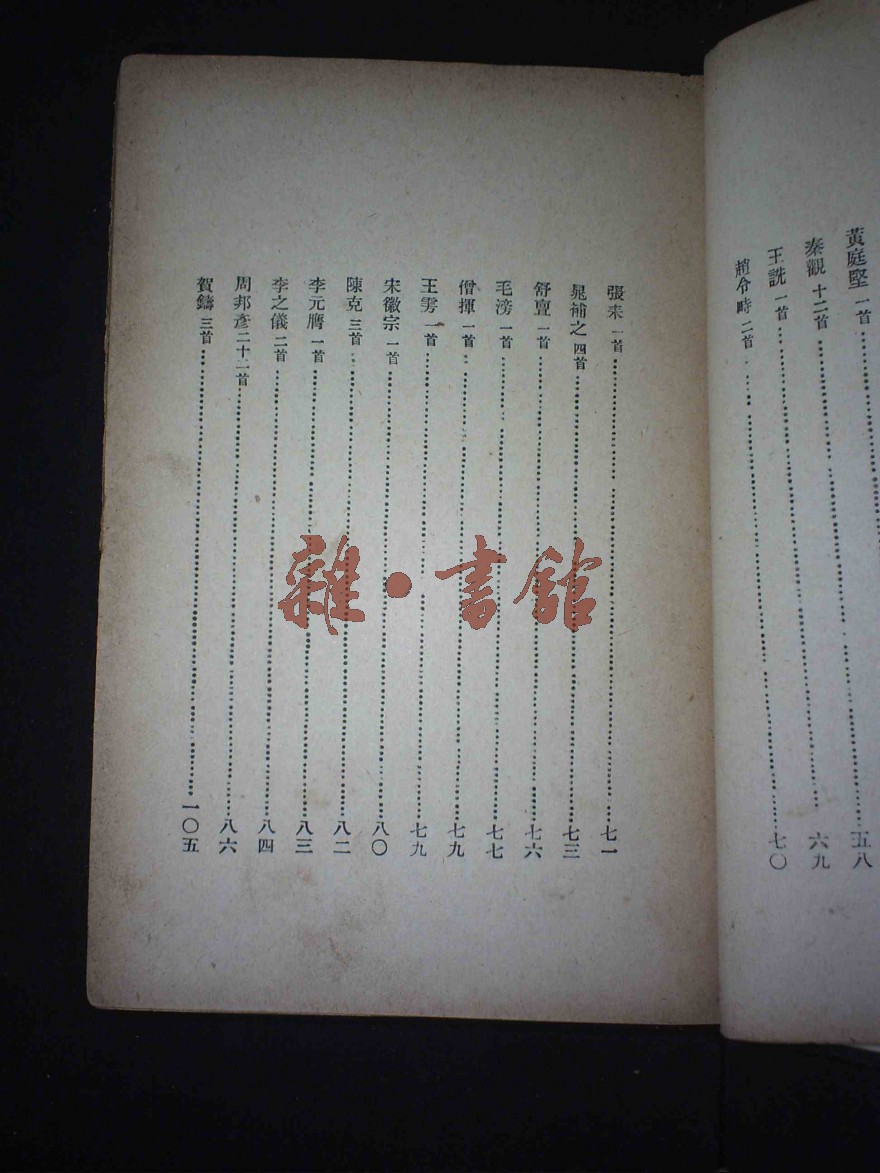 黃庭堅 一首……五八
秦觀 十二首……六九
王詵 一首……七〇
趙令畤 二首……
張耒 一首……七一
晁補之 四首……七三
舒亶 一首……七六
毛滂 一首……七七
僧揮 一首……七九
王雱 一首……七九
宋徽宗 一首……八〇
陳克 三首……八二
李元膺 一首……八三
李之儀 二首……八四
周邦彥 二十二首……八六
賀鑄 三首……一〇五
雜·書館